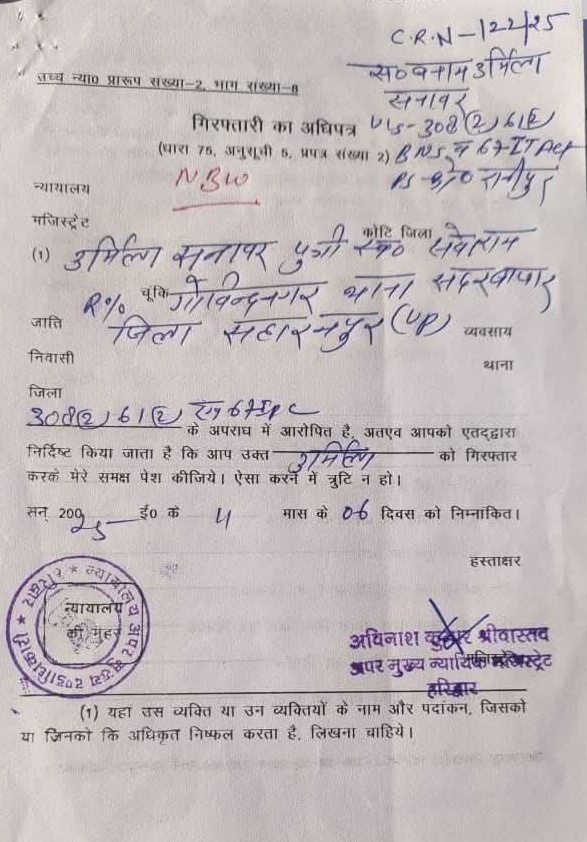 C.R.N-122/25
स० बनाम उर्मिला
सनावर
उच्च न्या0 प्रारूप संख्या-2, भाग संख्या-8
गिरफ्तारी का अधिपत्र
U/s-308(2) 61(2)
(धारा 75, अनुसूची 5, प्रपत्र संख्या 2)
BNS व 67-IT Act
न्यायालय
NBW
मजिस्ट्रेट
कोटि जिला
(1) उर्मिला सनावर पुत्री स्व०
चूंकि
R/o गोविन्दनगर थाना सदरबाजार
जाति
जिला सहारनपुर (UP)
व्यवसाय
निवासी
थाना
जिला
308(2) 61(2)
के अपराध में आरोपित है, अतएव आपको एतद्द्वारा
निर्दिष्ट किया जाता है कि आप उक्त उर्मिला को गिरफ्तार
करके मेरे समक्ष पेश कीजिये। ऐसा करने में त्रुटि न हो।
सन् 200 25 ई0 के 4 मास के 06 दिवस को निम्नांकित।
हस्ताक्षर
न्यायालय
की मुहर
न्यायालय अपर मुख्य
हरिद्वार
अविनाश कुमार श्रीवास्तव
अपर मुख्य न्यायिक मजिस्ट्रेट
हरिद्वार
(1) यहा उस व्यक्ति या उन व्यक्तियों के नाम और पदांकन, जिसको
या जिनको कि अधिकृत निष्फल करता है, लिखना चाहिये।